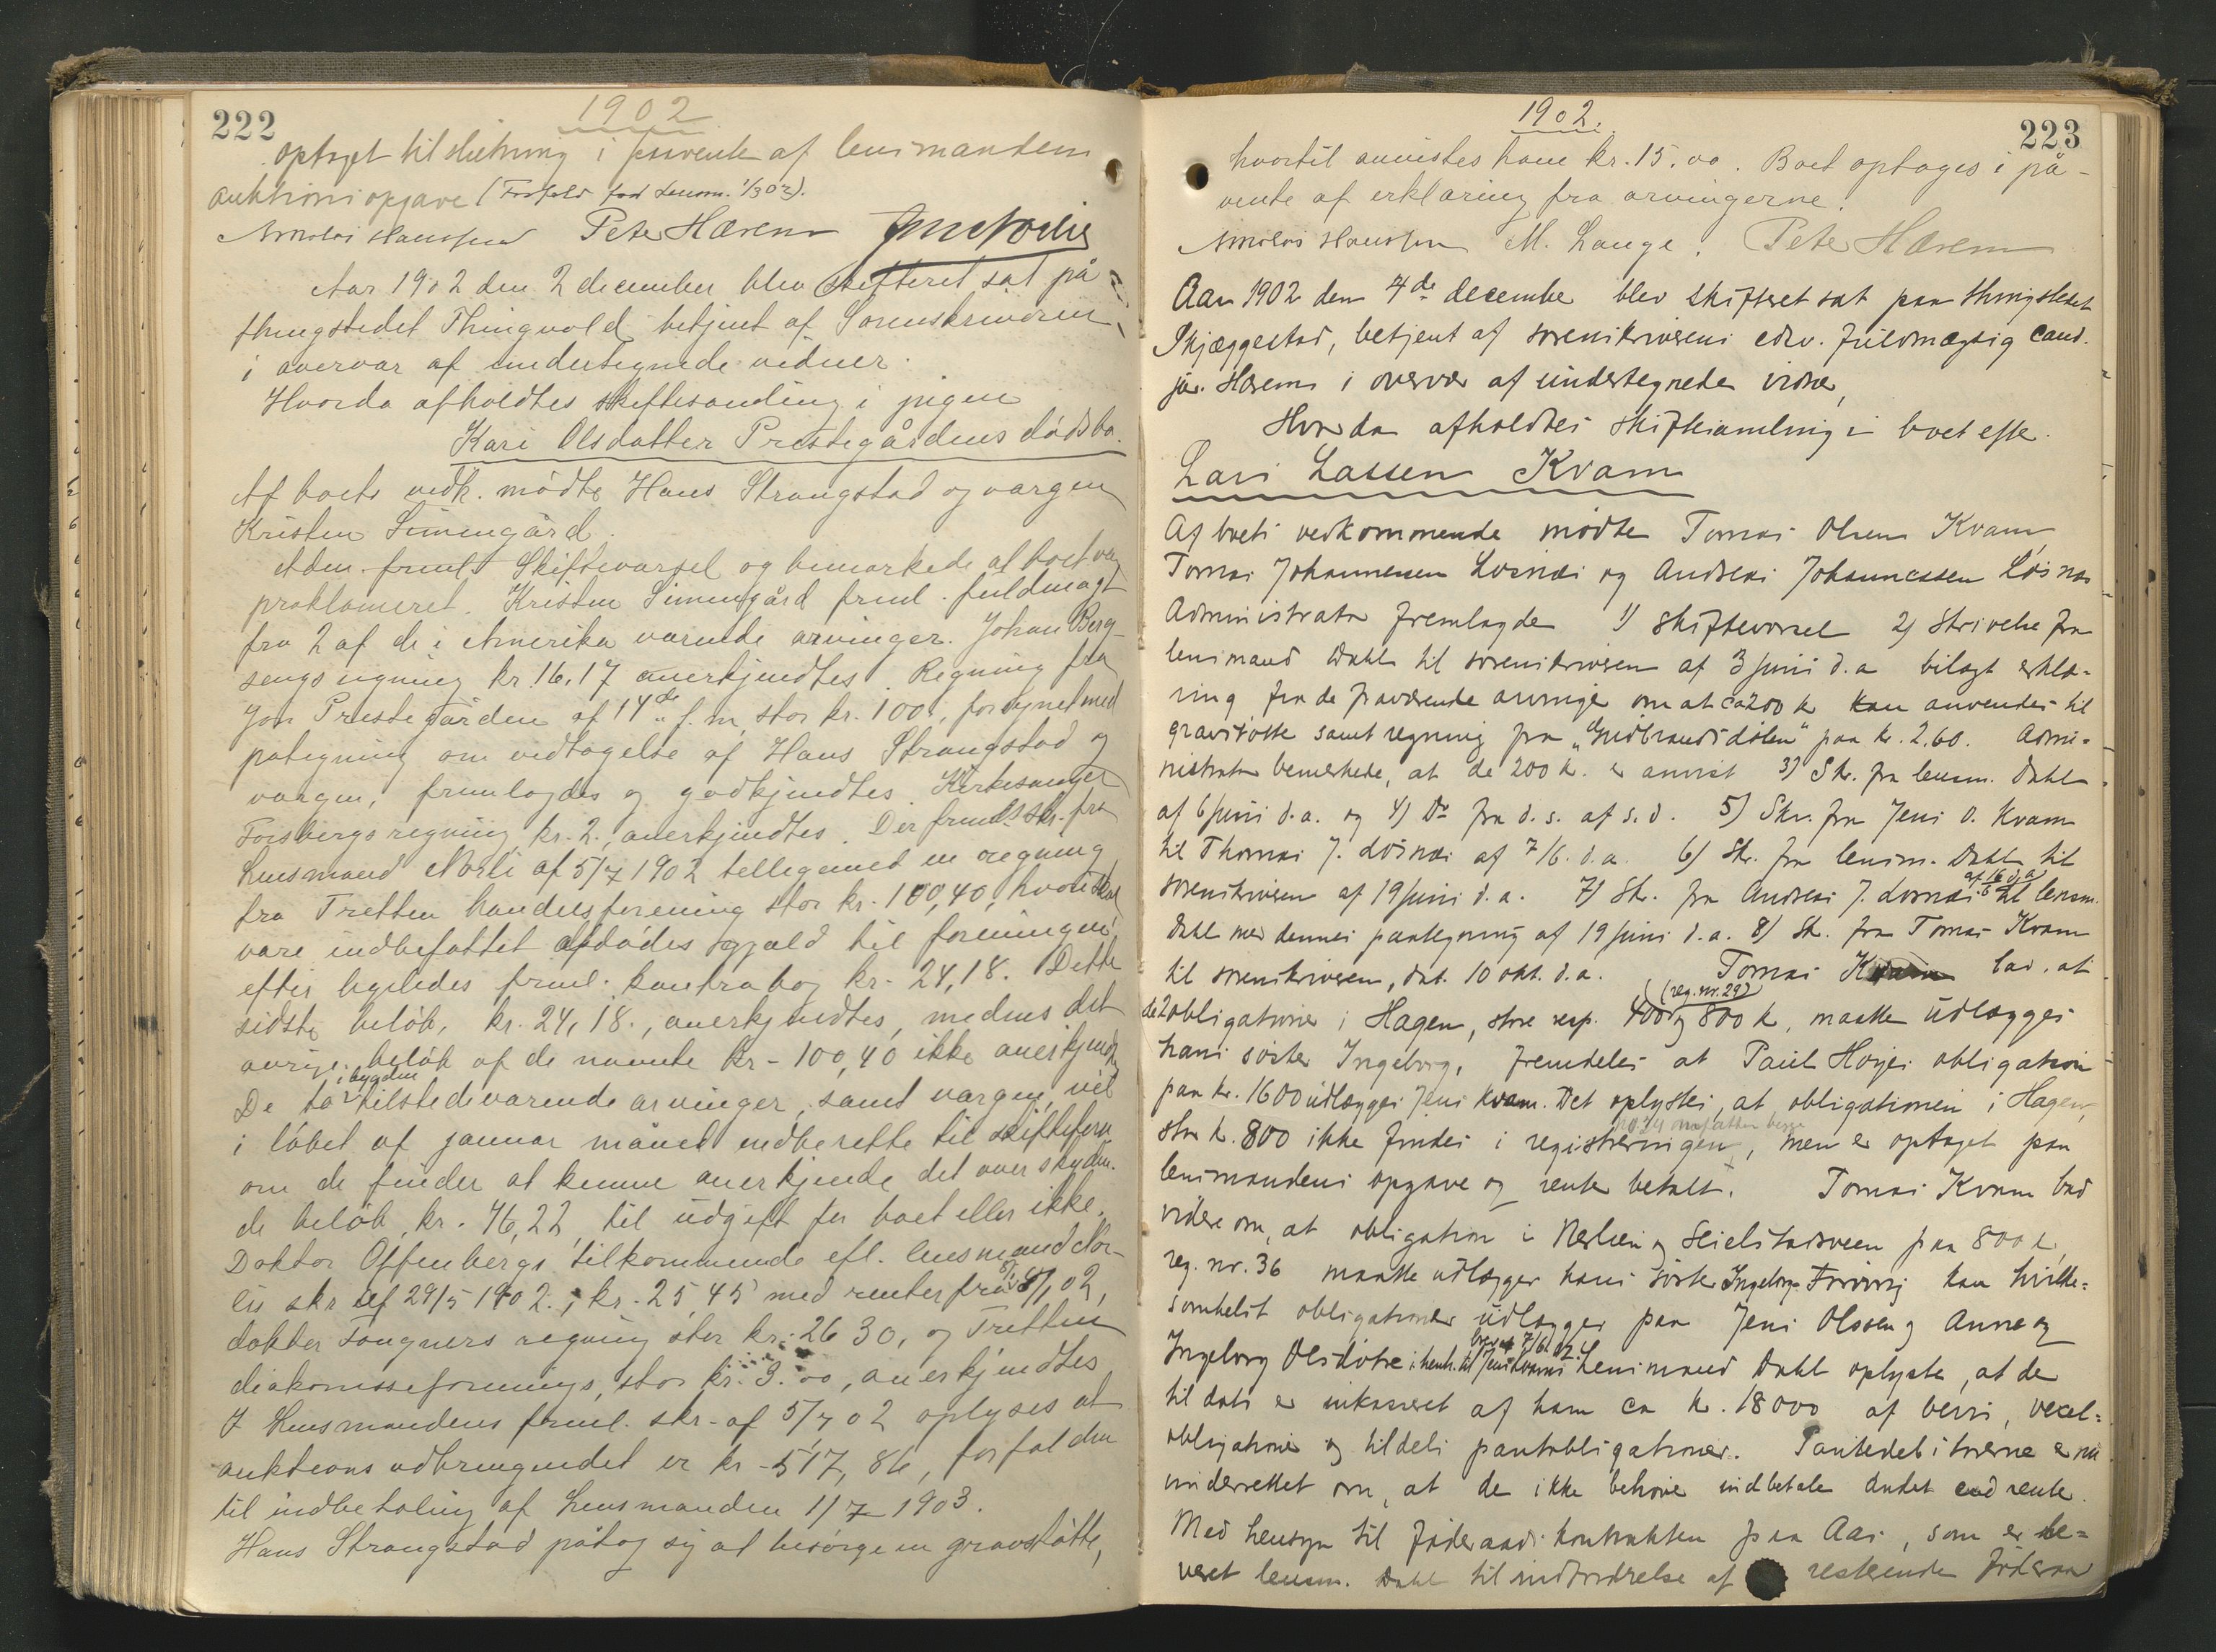 222
1902
optaget til slutning i påvente af lensmandens
auktionsopgave (Forfald fad lensm. 1/3 02).
Nikolai Hanssen Peter Hærem
Aar 1902 den 2 december blev skifteret sat på
thingstedet Thingvold betjent af Sorenskriveren
i overvær af undertegnede vidner.
Hvorda afholdtes skiftesamling i pigen
Kari Olsdatter Prestegårdens dødsbo.
Af boets vedk. mødte Hans Strangstad og værgen
Kristen Simengård.
Adm. freml. Skiftevarsel og bemærkede at boet var
proklameret. Kristen Simengård freml. fuldmagt
fra 2 af de i Amerika værende arvinger. Johan Berg-
sengs regning kr. 16.17 anerkjendtes. Regning fra
Jon Prestegården af 14de f. m, stor kr. 100, forsynet med
påtegning om vedtagelse af Hans Strangstad og
værgen, fremlagdes og godkjendtes. Kirkesanger
Forsbergs regning kr. 2., anerkjendtes. Der freml. skr. fra
lensmand Norli af 5/7 1902 tilligemed en regning
fra Tretten handelsforening stor kr. 100,40, hvori skal
være indbefattet afdødes gjæld til foreningen,
efter hendes freml. kontrabog kr. 24,18. Dette
sidste beløb, kr. 24,18., anerkjendtes, medens det
øvrige beløb af de nævnte kr - 100,40 ikke anerkjendtes
De to i bygden tilstedeværende arvinger, samt værgen vil
i løbet af januar måned indberette til skifteforv.
om de finder at kunne anerkjende det overskyden-
de beløb, kr. 76,22 til udgift for boet eller ikke.
Doktor Offenbergs tilkommende efl. lensmand Nor-
lis skr af 29/5 1902., kr. 25,45 med renter fra 8/1 02,
doktor Fougners regning stor kr: 26 30, og Tretten
diakonisseforenings, stor kr. 9.00, anerkjendtes
I lensmandens freml. skr. af 5/7 02 oplyses at
auktions udbringendet er kr - 517,86, forfalden
til indbetaling af lensmanden 1/7 1903.
Hans Strangstad påtog sig at besørge en gravstøtte,
1902.
223
hvortil anvistes ham kr. 15.00. Boet optages i på-
vente af erklæring fra arvingerne.
Nikolai Hanssen M. Lange. Peter Hærem
Aar 1902 den 4de december blev skifteret sat paa thingstedet
Skjæggestad, betjent af sorenskriverens edsv. fuldmægtig cand.
jur. Hærem i overvær af undertegnede vidner,
Hvorda afholdtes skiftesamling i boet efter
Lars Larsen Kvam
Af boets vedkommende mødte Tomas Olsen Kvam,
Tomas Johannessen Losnæs og Andreas Johannessen Losnæs
Administrator fremlagde 1) skiftevarsel 2) Skrivelse fra
lensmand Dahl til sorenskriveren af 3 juni d.a bilagt erklæ-
ring fra de fraværende arvinger om at ca 200 kr kan anvendes til
gravstøtte samt regning fra "Gudbrandsdølen" paa kr. 2.60. Admi-
nistrator bemerkede, at de 200 kr. er anvist 3) Skr. fra lensm. Dahl
af 6 juni d.a. og 4) Do fra d.s. af s.d. 5) Skr. fra Jens O. Kvam
til Thomas J. Losnæs af 7/6. d.a. 6) Skr. fra lensm. Dahl til
sorenskriveren af 19 juni d.a. 7) Skr. fra Andreas J. Losnæs af 16/6 d.a til lensm.
Dahl med dennes paategning af 19 juni d.a. 8) Skr. fra Tomas Kvam
til sorenskriveren, dat. 10 okt. d.a. Tomas Kvam bad, at
de 2 obligationer i Hagen, store resp. 400 (reg. nr. 29) og 800 kr, maatte udlægges
hans søster Ingeborg, fremdeles at Paul Horjes obligation
paa kr. 1600 udlægges Jens Kvam. Det oplystes, at obligationen i Hagen,
stor kr. 800 ikke findes i registreringen, men er optaget paa
lensmandens opgave og rente betalt. Tomas Kvam bad
videre om, at obligation i Nerlien og Seielstadsveen paa 800 kr,
reg. nr. 36 maatte udlægges hans søster Ingeborg. Forøvrig kan hvilke-
somhelst obligationer udlægges paa Jens Olssen og Anne og
Ingeborg Olsdøtre i henh. til Jens Kvams brev af 7/6 02. Lensmand Dahl oplyste, at der
til dato er inkasseret af ham ca kr. 18000 af bevis, vexel-
obligationer og tildels pantobligationer. Pantedebitorerne er nu
underrettet om, at de ikke behøver indbetale andet end rente.
Med hensyn til føderaadskontrakten paa Aas, som er le-
veret lensm. Dahl til inddrivelse af resterende føderaad